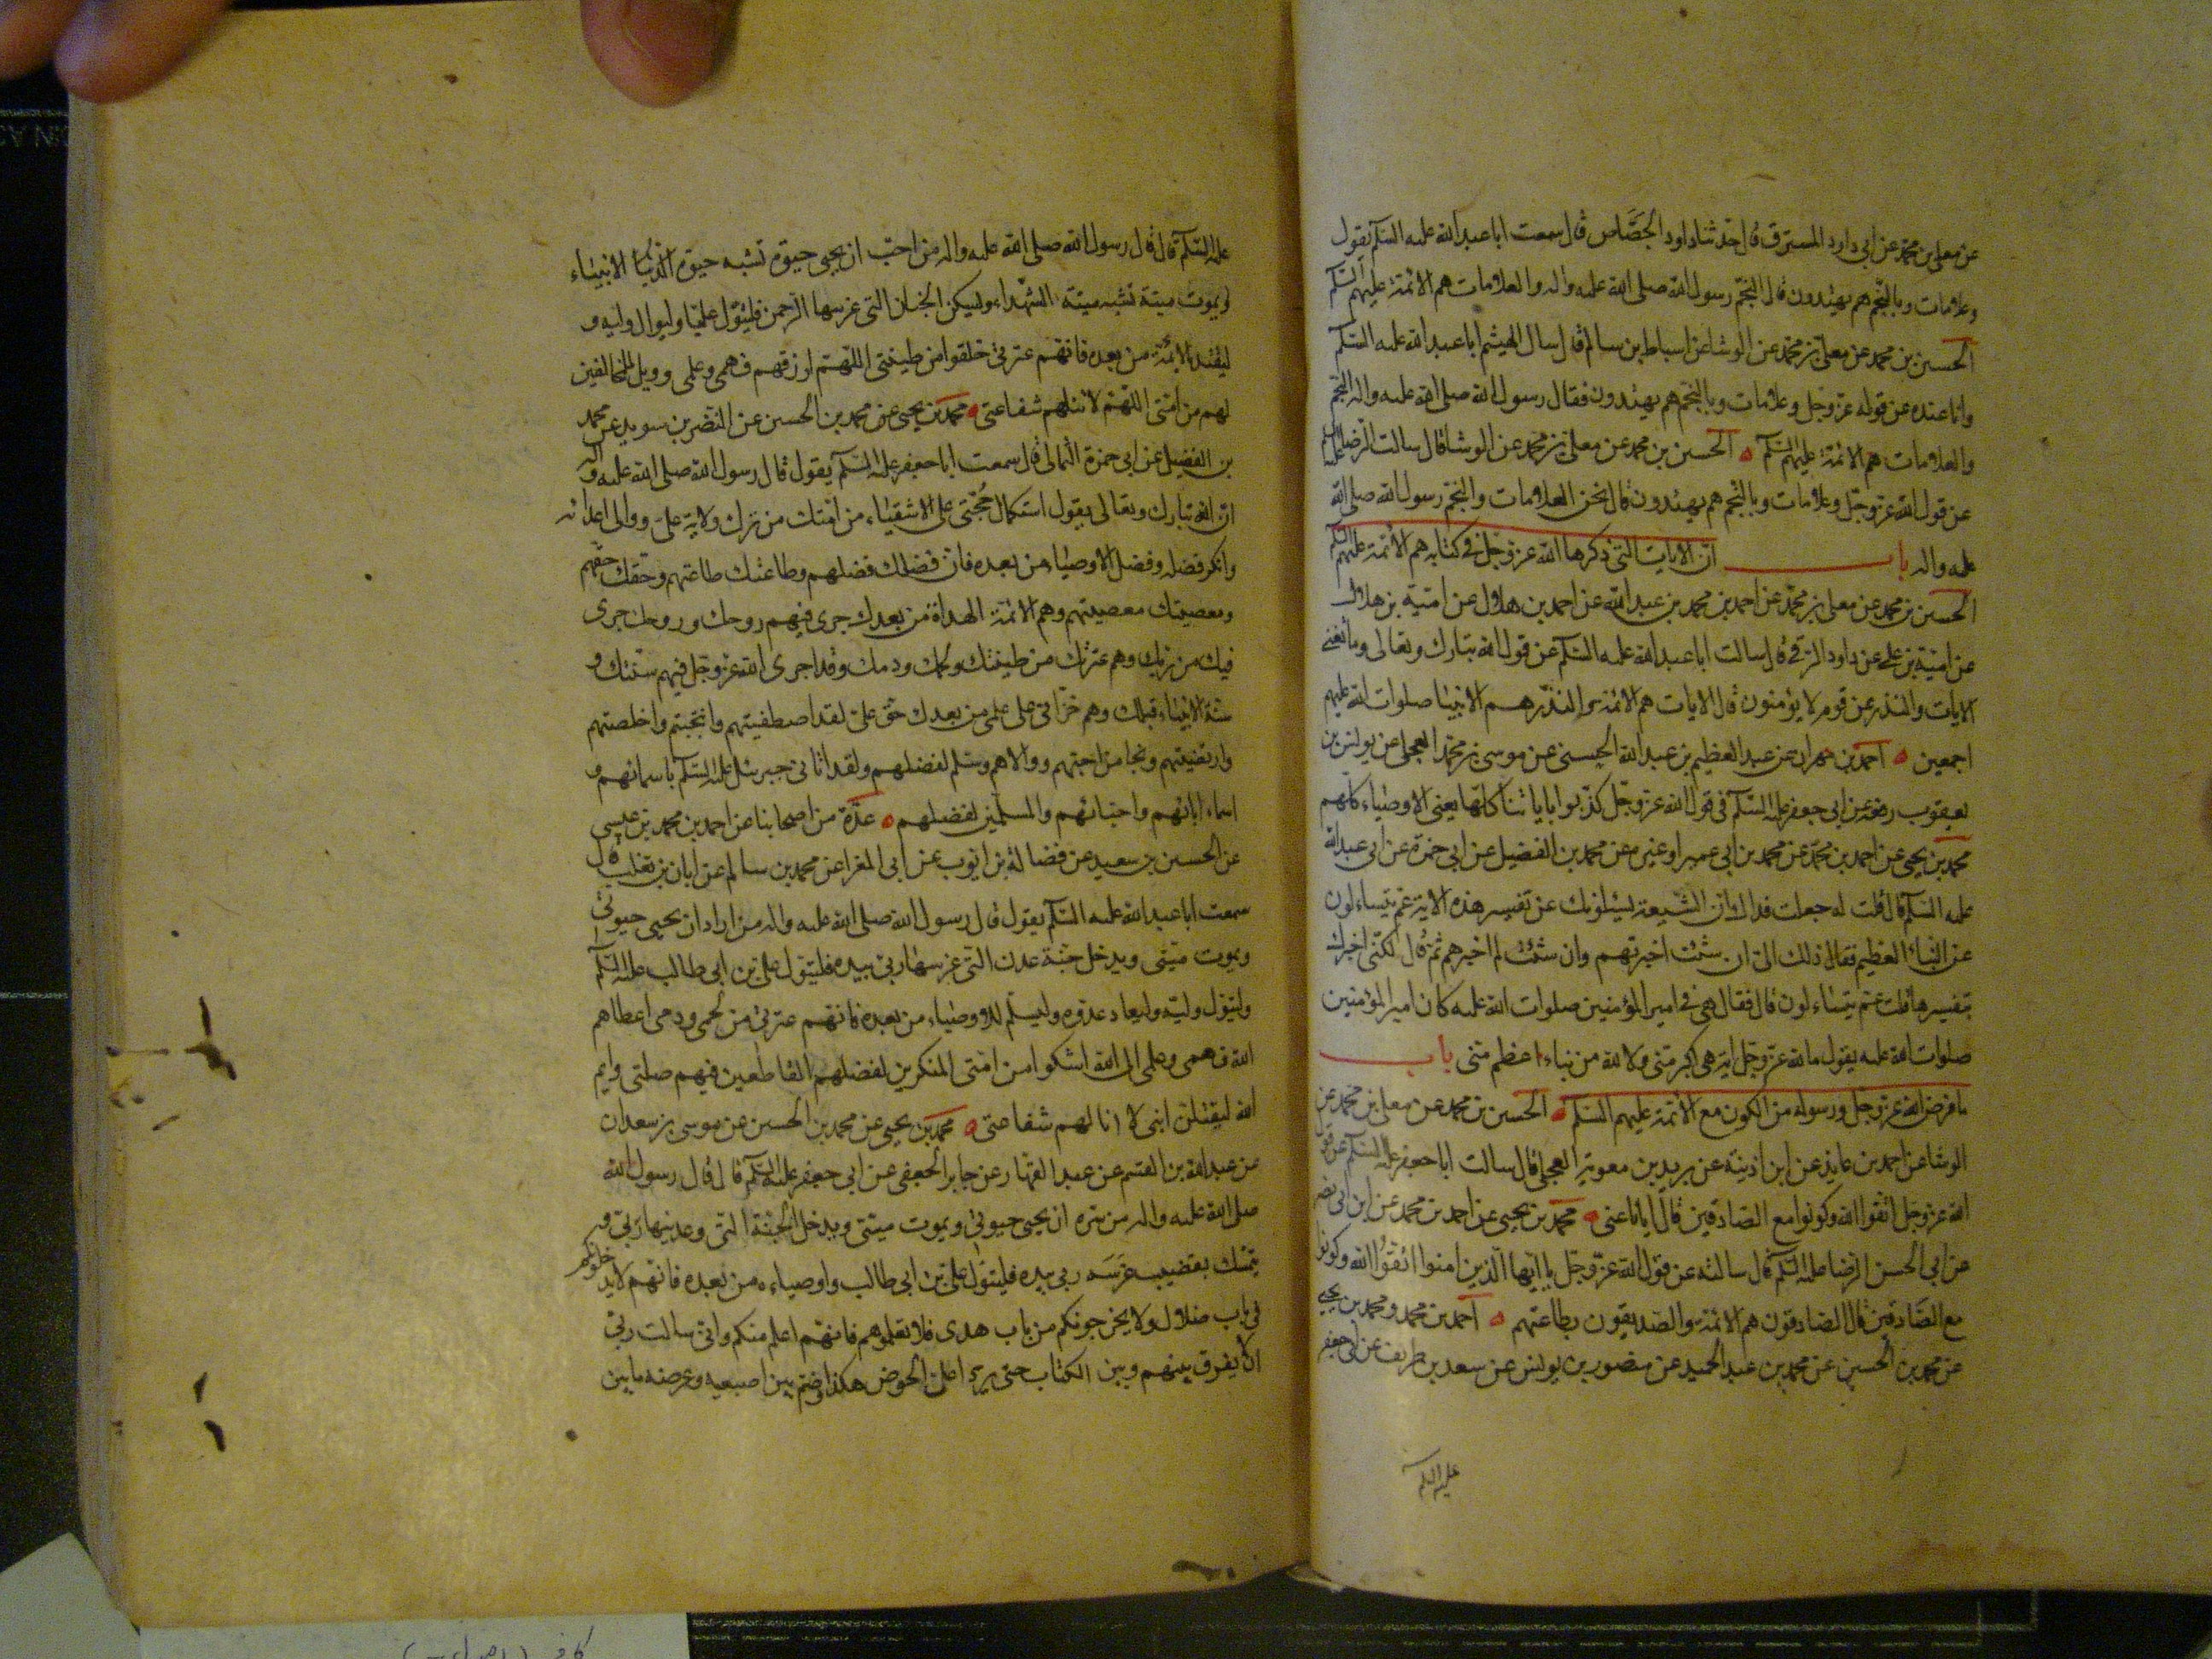 عن معلى بن محمد عن ابى داود المسترق قال حدثنا داود الجصّاص قال سمعت ابا عبد الله عليه السلم يقول
وعلامات وبالنجم هم يهتدون قال النجم رسول الله صلى الله عليه واله والعلامات هم الائمة عليهم السلم
الحسين بن محمد عن معلى بن محمد عن الوشا عن اسباط بن سالم قال سال الهيثم ابا عبد الله عليه السلم
وانا عنده عن قوله عز وجل وعلامات وبالنجم هم يهتدون فقال رسول الله صلى الله عليه واله النجم
والعلامات هم الائمة عليهم السلم الحسين بن محمد عن معلى بن محمد عن الوشا قال سالت الرضا عليه السلم
عن قول الله عز وجل وعلامات وبالنجم هم يهتدون قال نحن العلامات والنجم رسول الله صلى الله
عليه واله باب انّ الايات التى ذكرها الله عز وجل فى كتابه هم الائمة عليهم السلم
الحسين بن محمد عن معلى بن محمد عن احمد بن محمد بن عبد الله عن احمد بن هلال عن امية بن هلال
عن امية بن على عن داود الرقى قال سالت ابا عبد الله عليه السلم عن قول الله تبارك وتعالى وما تغنى
الايات والنذر عن قوم لا يؤمنون قال الايات هم الائمة والنذر هم الانبيا صلوات الله عليهم
اجمعين احمد بن مهران عن عبد العظيم بن عبد الله الحسنى عن موسى بن محمد العجلى عن يونس بن
يعقوب رفعه عن ابى جعفر عليه السلم فى قول الله عز وجل كذبوا باياتنا كلها يعنى الاوصياء كلهم
محمد بن يحيى عن احمد بن محمد عن محمد بن ابى عمير او غيره عن محمد بن الفضيل عن ابى حمزة عن ابى عبد الله
عليه السلم قال قلت له جعلت فداك ان الشيعة يسئلونك عن تفسير هذه الاية عم يتساءلون
عن النباء العظيم فقال ذلك الىّ ان شئت اخبرتهم وان شئت لم اخبرهم ثم قال لكنى اخبرك
بتفسيرها قلت عم يتساءلون قال فقال هى فى امير المؤمنين صلوات الله عليه كان امير المؤمنين
صلوات الله عليه يقول ما لله عز وجل اية هى اكبر منى ولا لله من نباء اعظم منى باب
ما فرض الله عز وجل ورسوله من الكون مع الائمة عليهم السلم الحسين بن محمد عن معلى بن محمد عن
الوشا عن احمد بن عايذ عن ابن اذينه عن بريد بن معوية العجلى قال سالت ابا جعفر عليه السلم عن قول
الله عز وجل اتقوا الله وكونوا مع الصادقين قال ايانا عنى محمد بن يحيى عن احمد بن محمد عن ابن ابى نصر
عن ابى الحسن الرضا عليه السلم قال سالته عن قول الله عز وجل يا ايها الذين امنوا اتقوا الله وكونوا
مع الصادقين قال الصادقون هم الائمة والصديقون بطاعتهم احمد بن محمد ومحمد بن يحيى
عن محمد بن الحسين عن محمد بن عبد الحميد عن منصور بن يونس عن سعد بن طريف عن ابى جعفر
عليه السلم
عليه السلم قال قال رسول الله صلى الله عليه واله من احب ان يحيى حيوة تشبه حيوة الانبياء
ويموت ميتة تشبه ميتة الشهداء وليسكن الجنان التى غرسها الرحمن فليتول عليا وليوال وليه و
ليقتد بالائمة من بعده فانهم عترتى خلقوا من طينتى اللهم ارزقهم فهمى وعلمى وويل للمخالفين
لهم من امتى اللهم لا تنلهم شفاعتى محمد بن يحيى عن محمد بن الحسين عن النضر بن سويد عن محمد
بن الفضيل عن ابى حمزة الثمالى قال سمعت ابا جعفر عليه السلم يقول قال رسول الله صلى الله عليه واله
ان الله تبارك وتعالى يقول استكمال حجتى على الاشقياء من امتك من ترك ولاية على ووالى اعدائه
وانكر فضله وفضل الاوصياء من بعده فان فضلك فضلهم وطاعتك طاعتهم وحقك حقهم
ومعصيتك معصيتهم وهم الائمة الهداة من بعدك جرى فيهم روحك وروحك جرى
فيك من ربك وهم عترتك من طينتك ولحمك ودمك وقد اجرى الله عز وجل فيهم سنتك و
سنة الانبياء قبلك وهم خزانى على علمى من بعدك حق على لقد اصطفيتهم وانتجبتهم واخلصتهم
وارتضيتهم ونجا من احبهم ووالاهم وسلم لفضلهم ولقد اتانى جبرئيل عليه السلم باسمائهم و
اسماء ابائهم واحبائهم والمسلمين لفضلهم عدة من اصحابنا عن احمد بن محمد بن عيسى
عن الحسين بن سعيد عن فضالة بن ايوب عن ابى المغرا عن محمد بن سالم عن ابان بن تغلب قال
سمعت ابا عبد الله عليه السلم يقول قال رسول الله صلى الله عليه واله من اراد ان يحيى حيوتى
ويموت ميتتى ويدخل جنة عدن التى غرسها ربى بيده فليتول على بن ابى طالب عليه السلم
وليتول وليه وليعاد عدوه وليسلم للاوصياء من بعده فانهم عترتى من لحمى ودمى اعطاهم
الله فهمى وعلمى الى الله اشكوا من امتى المنكرين لفضلهم القاطعين فيهم صلتى وايم
الله ليقتلن ابنى لا انالهم شفاعتى محمد بن يحيى عن محمد بن الحسين عن موسى بن سعدان
عن عبد الله بن القسم عن عبد القهار عن جابر الجعفى عن ابى جعفر عليه السلم قال قال رسول الله
صلى الله عليه واله من سره ان يحيى حيوتى ويموت ميتتى ويدخل الجنة التى وعدنيها ربى و
يتمسك بقضيب غرسه ربى بيده فليتول على بن ابى طالب واوصياءه من بعده فانهم لا يدخلونكم
فى باب ضلال ولا يخرجونكم من باب هدى فلا تعلموهم فانهم اعلم منكم وانى سالت ربى
الا يفرق بينهم وبين الكتاب حتى يردا على الحوض هكذا وضم بين اصبعيه وعرضه ما بين